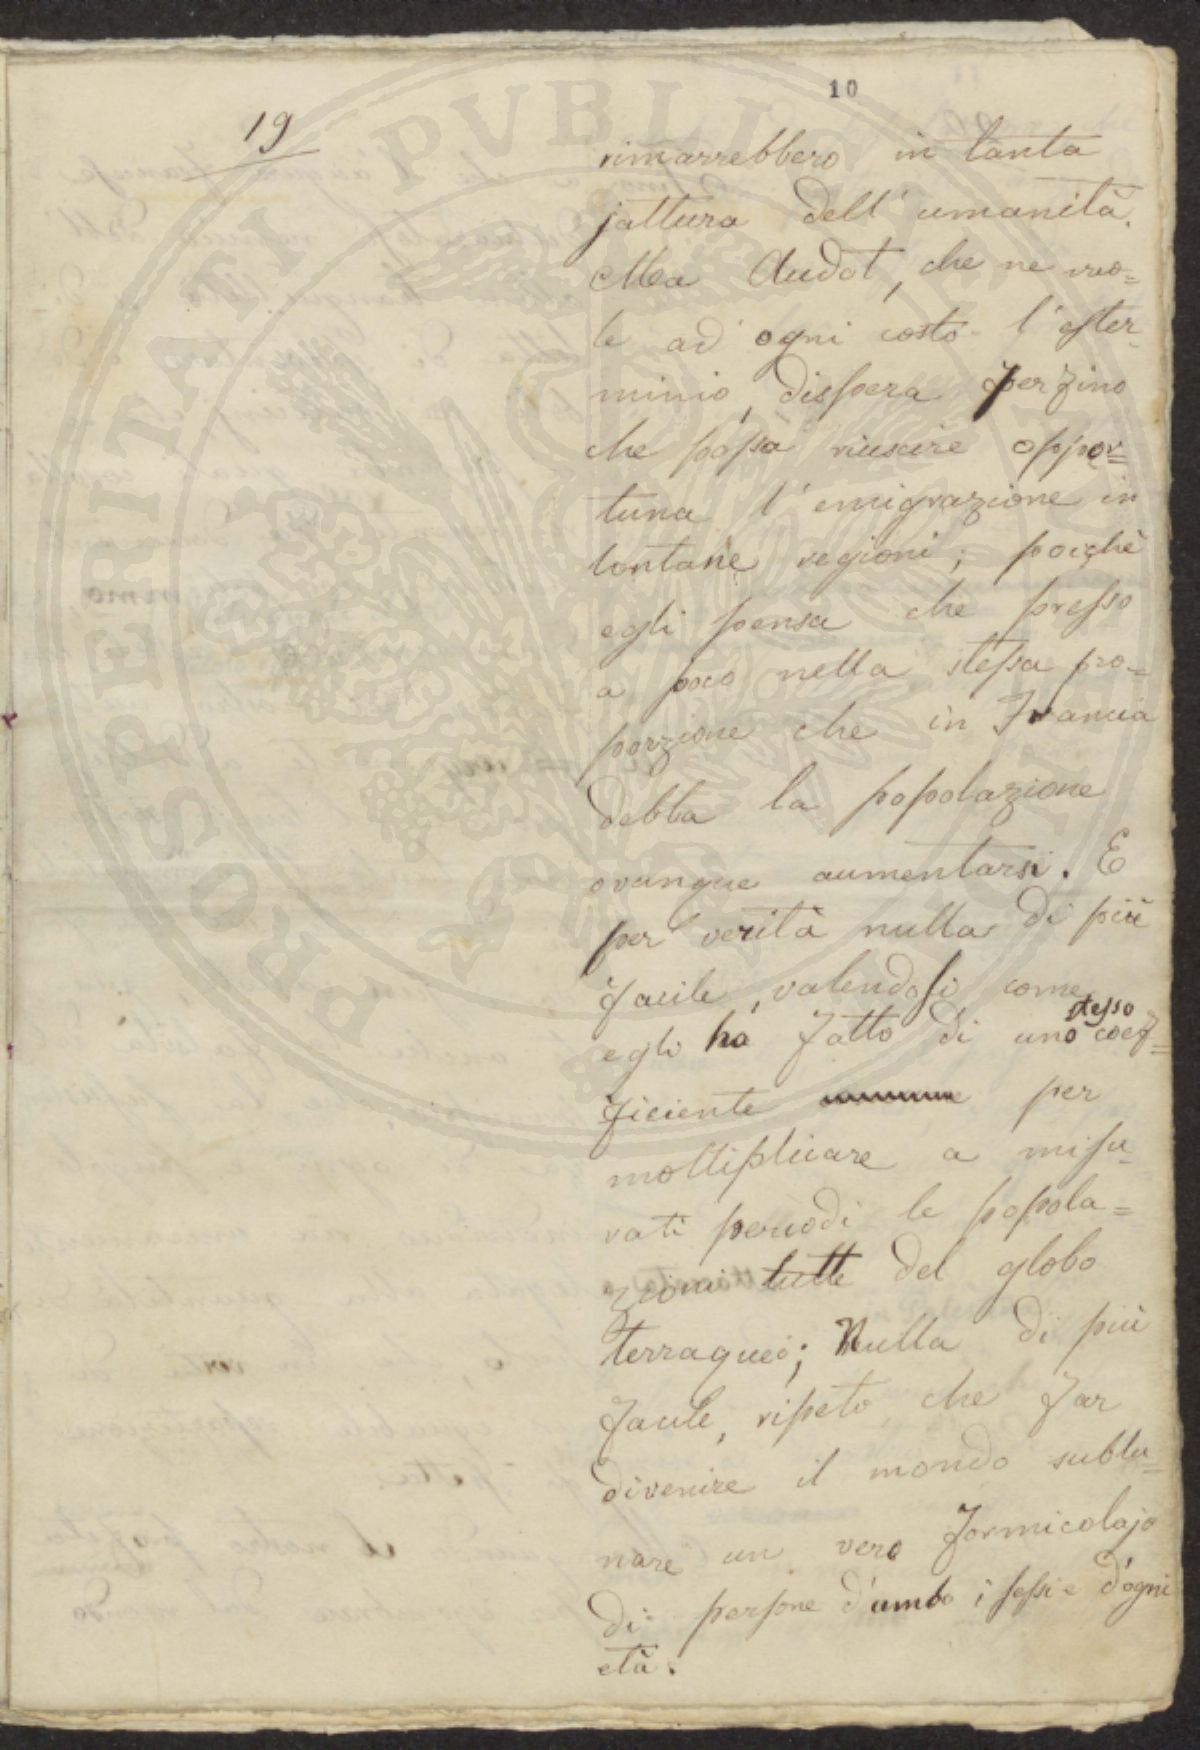 10
19
rimarrebbero in tanta
jattura dell'umanità.
Ma Audot, che ne vuo=
le ad ogni costo l'ester-
minio, dispera perfino
che possa riuscire oppor=
tuna l'emigrazione in
lontane regioni; poichè
egli pensa che presso
a poco nella stessa pro=
porzione che in Francia
debba la popolazione
ovunque aumentarsi. E
per verità nulla di più
facile, valendosi come
egli ha fatto di uno stesso coef=
ficiente per
moltiplicare a misu-
rati periodi le popola=
zioni tutte del globo
terraqueo; Nulla di più
facile, ripeto, che far
divenire il mondo sublu=
nare un vero formicolajo
di persone d'ambo i sessi e d'ogni
età.
PROSPERITATI PVBLICAE